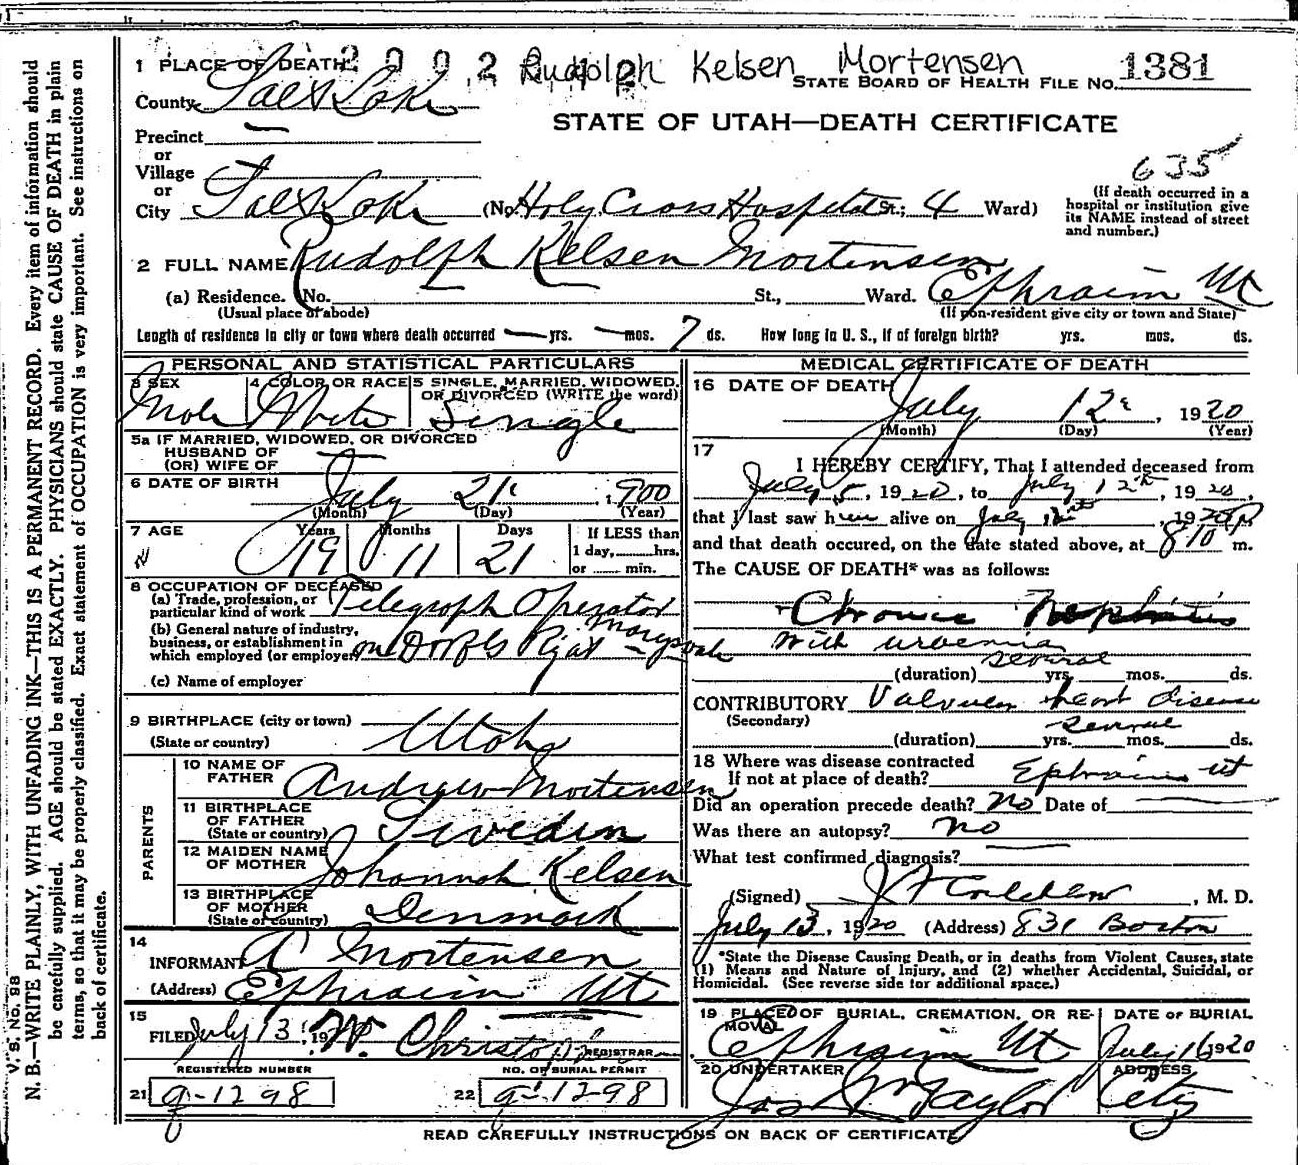 2 0 0 2 Rudolph Kelsen Mortensen
1 PLACE OF DEATH
STATE BOARD OF HEALTH FILE NO. 1381
County Salt Lake
STATE OF UTAH—DEATH CERTIFICATE
Precinct —
or
Village
or
635
(If death occurred in a hospital or institution give its NAME instead of street and number.)
City Salt Lake (No. Holy Cross Hospital St.; 4 Ward)
2 FULL NAME Rudolph Kelsen Mortensen
(a) Residence. No. St., Ward. Ephraim Ut
(Usual place of abode) (If non-resident give city or town and State)
Length of residence in city or town where death occurred — yrs. — mos. 7 ds. How long in U. S., if of foreign birth? yrs. mos. ds.
PERSONAL AND STATISTICAL PARTICULARS
3 SEX Male
4 COLOR OR RACE White
5 SINGLE, MARRIED, WIDOWED, OR DIVORCED (WRITE the word) Single
5a IF MARRIED, WIDOWED, OR DIVORCED
HUSBAND OF
(OR) WIFE OF
6 DATE OF BIRTH July 21 1900
(Month) (Day) (Year)
7 AGE Years 19 Months 11 Days 21
If LESS than
1 day, hrs.
or min.
8 OCCUPATION OF DECEASED
(a) Trade, profession, or particular kind of work Telegraph Operator
(b) General nature of industry, business, or establishment in which employed (or employer) on D & R G Marysvale
(c) Name of employer
9 BIRTHPLACE (city or town)
(State or country) Utah
PARENTS
10 NAME OF FATHER Andrew Mortensen
11 BIRTHPLACE OF FATHER (State or country) Sweden
12 MAIDEN NAME OF MOTHER Johannah Kelsen
13 BIRTHPLACE OF MOTHER (State or country) Denmark
14
INFORMANT A Mortensen
(Address) Ephraim Ut
15
FILED July 13, 19 W. Christo REGISTRAR
REGISTERED NUMBER NO. OF BURIAL PERMIT
21 a-1298 22 a-1298
MEDICAL CERTIFICATE OF DEATH
16 DATE OF DEATH
July 12, 1920
(Month) (Day) (Year)
17
I HEREBY CERTIFY, That I attended deceased from
July 5, 1920, to July 12th, 1920,
that I last saw him alive on July 12th, 1920
and that death occured, on the date stated above, at 810 P m.
The CAUSE OF DEATH* was as follows:
Chronic Nephritis
with uremia
(duration) several yrs. mos. ds.
CONTRIBUTORY Valvular heart disease
(Secondary)
(duration) several yrs. mos. ds.
18 Where was disease contracted
If not at place of death? Ephraim Ut
Did an operation precede death? No Date of —
Was there an autopsy? no
What test confirmed diagnosis?
(Signed) J F Critchlow, M. D.
July 13, 1920 (Address) 831 Boston
*State the Disease Causing Death, or in deaths from Violent Causes, state
(1) Means and Nature of Injury, and (2) whether Accidental, Suicidal, or
Homicidal. (See reverse side for additional space.)
19 PLACE OF BURIAL, CREMATION, OR REMOVAL Ephraim Ut
DATE OF BURIAL July 16 1920
20 UNDERTAKER Jos Wm Taylor
ADDRESS City
READ CAREFULLY INSTRUCTIONS ON BACK OF CERTIFICATE
V. S. No. 98
N. B.—WRITE PLAINLY, WITH UNFADING INK—THIS IS A PERMANENT RECORD. Every item of information should
be carefully supplied. AGE should be stated EXACTLY. PHYSICIANS should state CAUSE OF DEATH in plain
terms, so that it may be properly classified. Exact statement of OCCUPATION is very important. See instructions on
back of certificate.